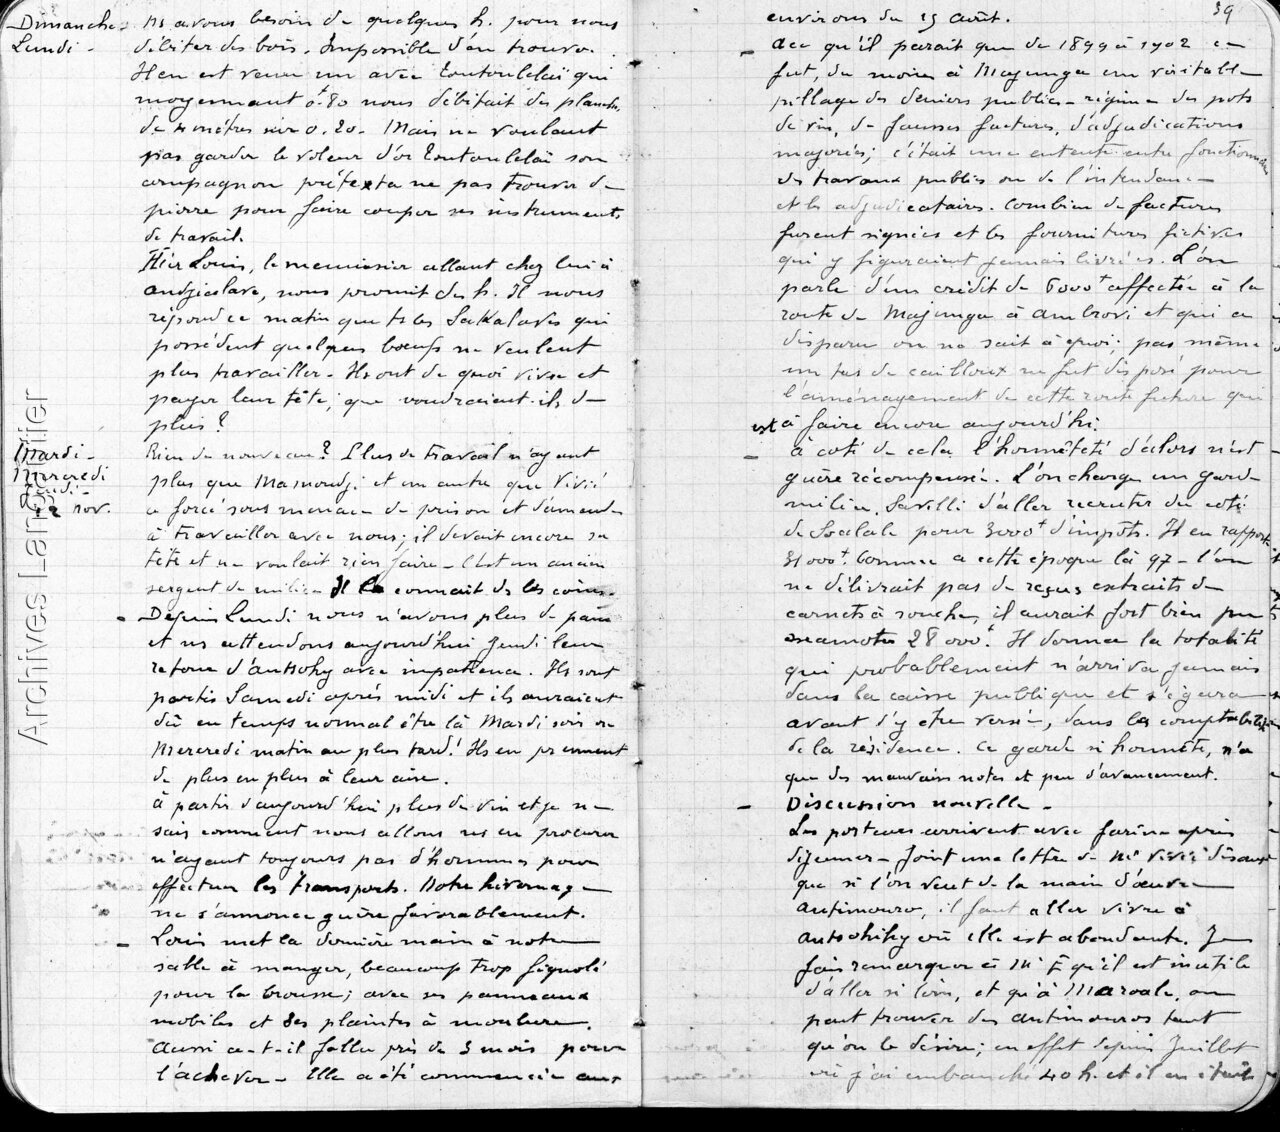 Dimanche - Ns avons besoin de quelques h. pour nous
Lundi - débiter des bois. Impossible d'en trouver.
Hier est venu un avec Toutoulelaï qui
moyennant 0f.80 nous débitait des planches
de 4 mètres sur 0.20. Mais ne voulant
pas garder le voleur d'or Toutoulelaï son
compagnon prétexta ne pas trouver de
pierre pour faire couper ses instruments
de travail.
Hier Louis, le menuisier allant chez lui à
Andjialava, nous promit des h. Il nous
répond ce matin que ts les Sakalaves qui
possèdent quelques bœufs ne veulent
plus travailler. Ils ont de quoi vivre et
payer leur tête; que voudraient-ils de
plus?
Mardi - Rien de nouveau? Plus de travail n'ayant
Mercredi plus que Mamoudj. et un autre que Vivié
Jeudi - a forcé sous menace de prison et d'amende
2 nov. à travailler avec nous; il devait encore sa
tête et ne voulait rien faire - C'est un ancien
sergent de milice. Il la connait ds les coins.
- Depuis Lundi nous n'avons plus de pain
et ns attendons aujourd'hui Jeudi leur
retour d'Antsohy avec impatience. Ils sont
partis Samedi après midi et ils auraient
dû en temps normal être là Mardi soir ou
Mercredi matin au plus tard! Ils en prennent
de plus en plus à leur aise.
à partir d'aujourd'hui plus de vin et je ne
sais comment nous allons ns en procurer
n'ayant toujours pas d'hommes pour
effectuer les transports. Notre hivernage
ne s'annonce guère favorablement.
- Louis met la dernière main à notre
salle à manger, beaucoup trop fignolé
pour la brousse; avec ses panneaux
mobiles et ses plaintes à moulure.
Aussi a-t-il fallu près de 3 mois pour
l'achever - Elle a été commencée aux
39
environs du 15 Août.
- Dce qu'il parait que de 1899 à 1902 ce
fut, du moins à Majunga un véritable
pillage des deniers publics - régime des pots
de vin, de fausses factures, d'adjudications
majorées; c'était une entente entre fonctionnaires
des travaux publics ou de l'intendance
et les adjudicataires. Combien de factures
furent signées et les fournitures fictives
qui y figuraient jamais livrées. L'on
parle d'un crédit de 6000f affectée à la
route de Majunga à Ambrovi et qui a
disparu on ne sait à quoi; pas même
un tas de cailloux ne fut disposé pour
l'aménagement de cette route future qui
est à faire encore aujourd'hi.
- à coté de cela l'honnêteté d'alors n'est
guère récompensée. L'on charge un garde
milice, Savilli d'aller recruter du coté
de Soalala pour 3000f d'impôts. Il en rapporte
31000f. Comme a cette époque là 97 - l'on
ne délivrait pas de reçus extraits de
carnets à souche, il aurait fort bien pu
escamoter 28000f. Il donna la totalité
qui probablement n'arriva jamais
dans la caisse publique et s'égara
avant d'y être versée, dans la comptabilité
de la résidence. Ce garde si honnête, n'a
que des mauvaises notes et peu d'avancement.
- Discussion nouvelle -
Les porteurs arrivent avec farine après
déjeuner - Joint une lettre de Mr Vivié disant
que si l'on veut de la main d'œuvre
Antimouro, il faut aller vivre à
Antsohihy où elle est abondante. Je
fais remarquer à Mr E qu'il est inutile
d'aller si loin, et qu'à Maroala, on
peut trouver des antimouros tant
qu'on le désire; en effet depuis Juillet
où j'ai embauché 40 h. et il en était
Archives Langotier